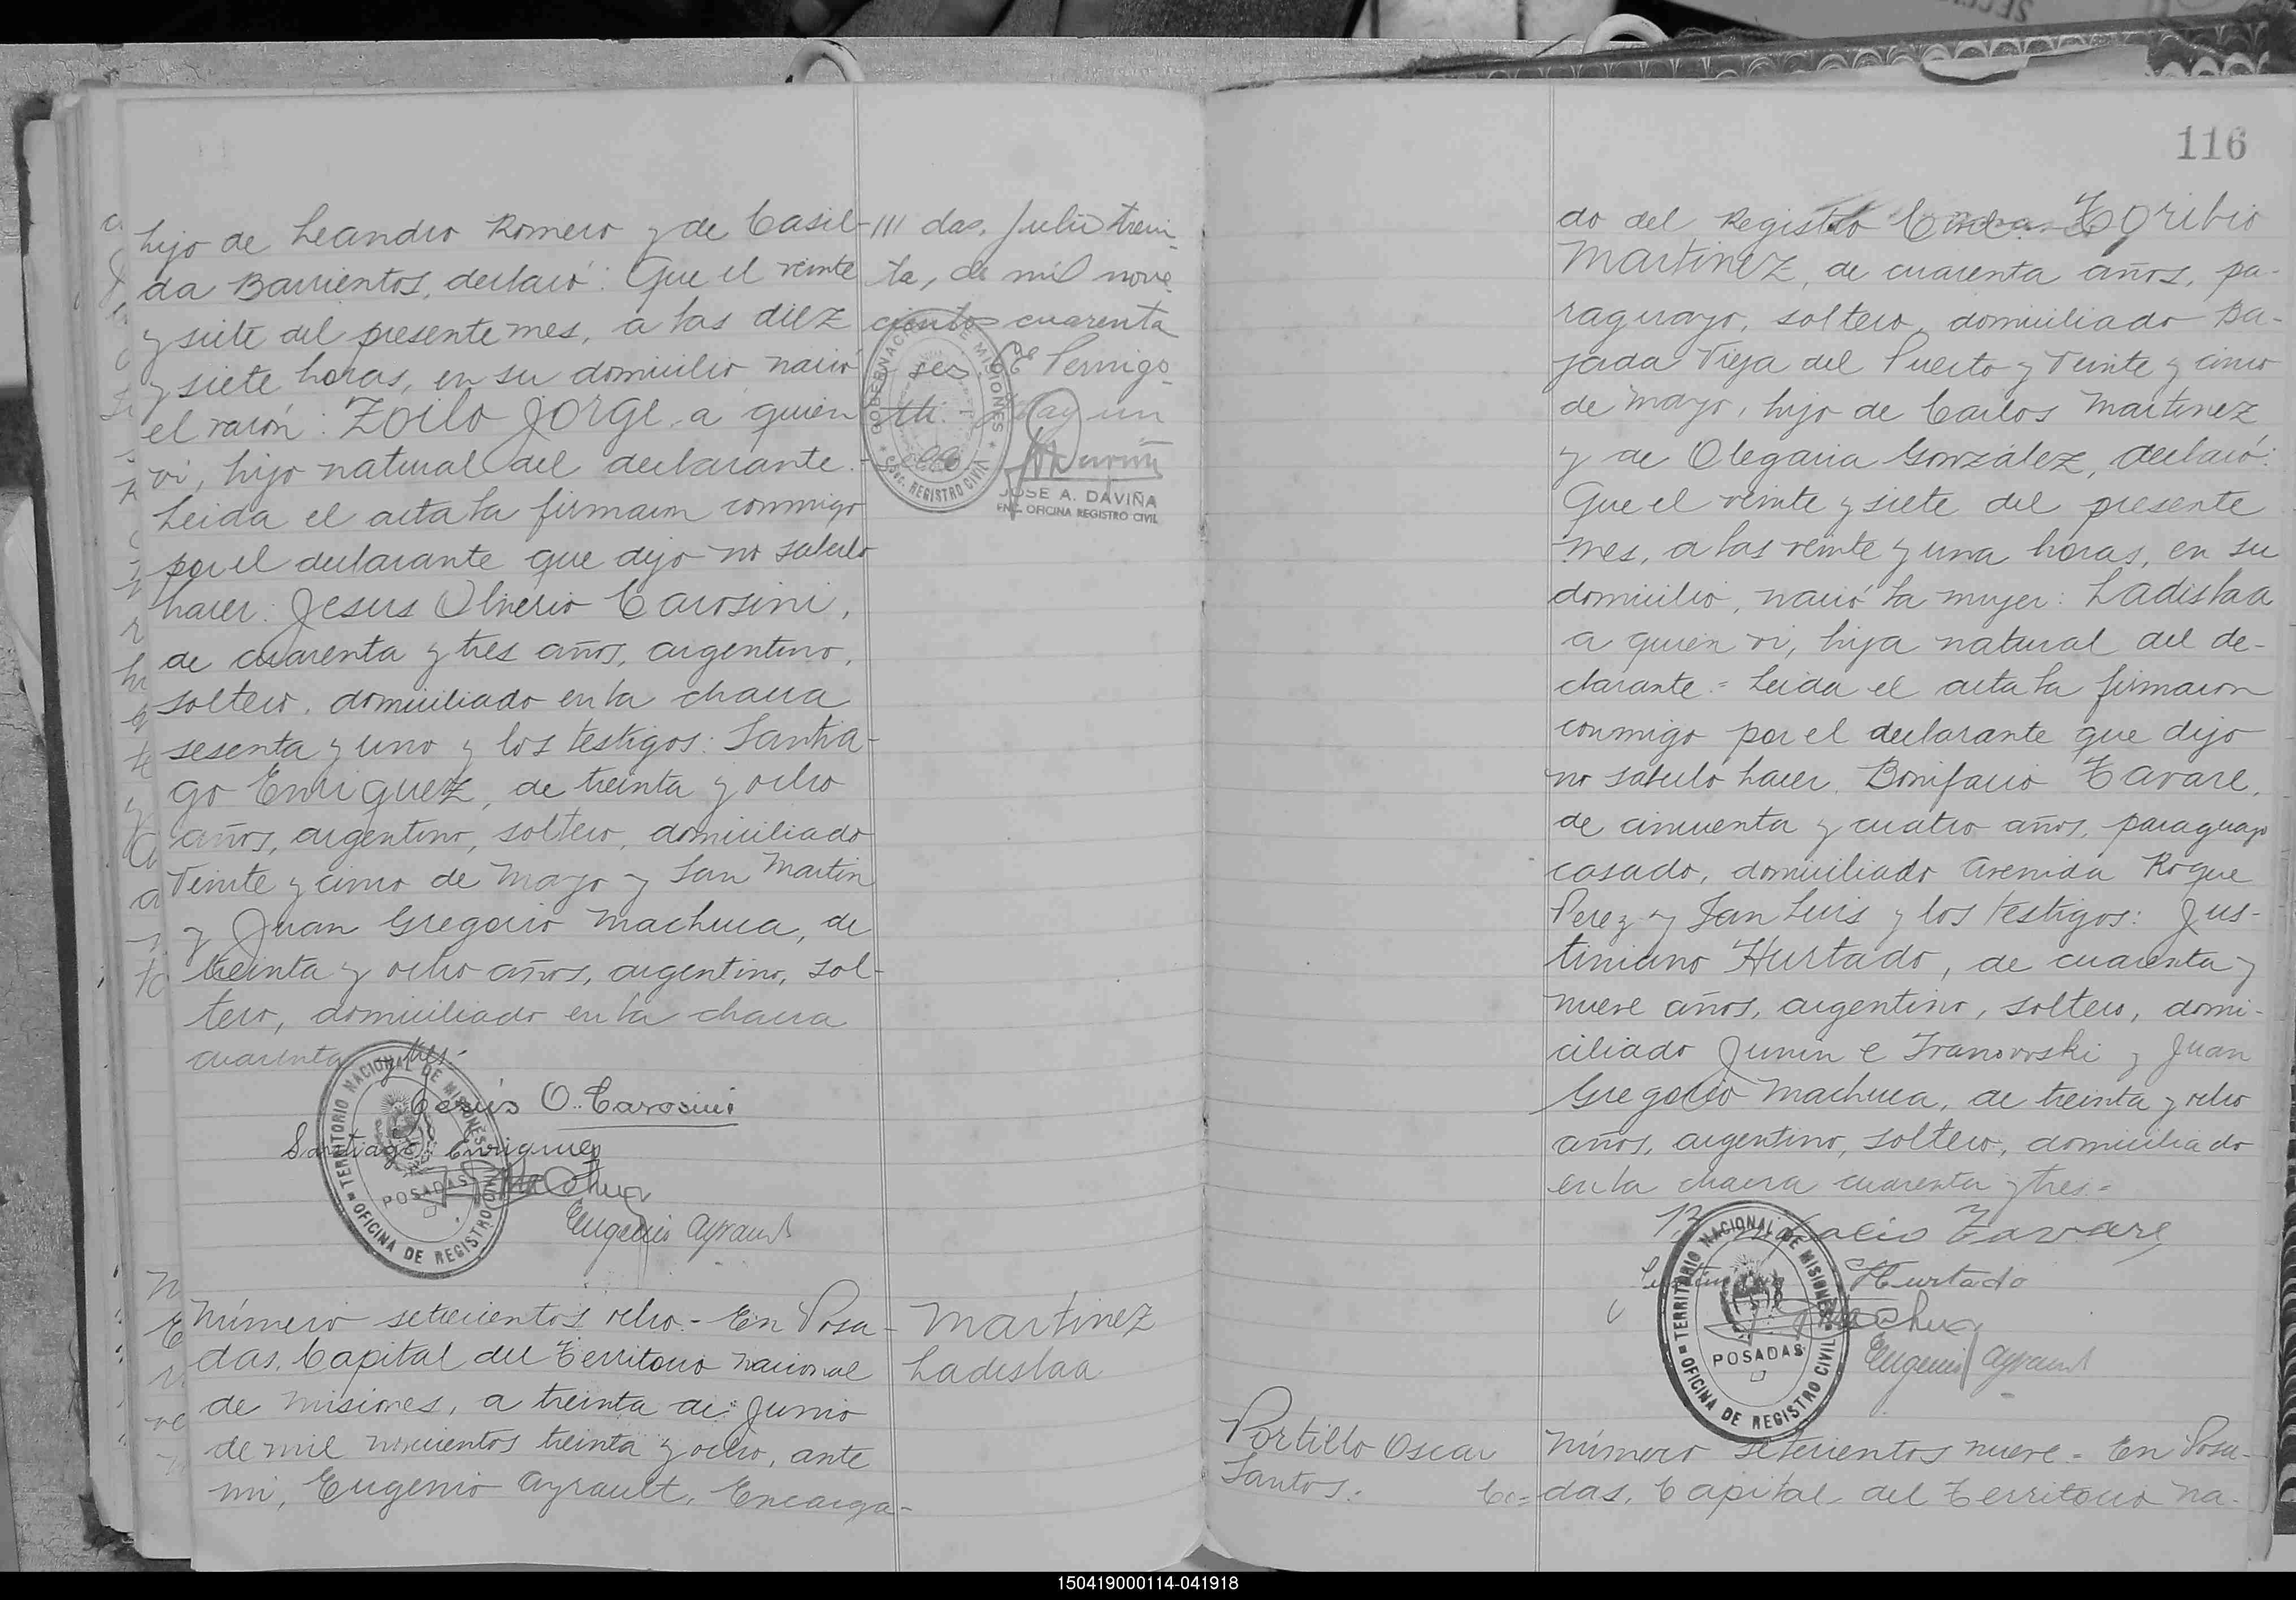 hijo de Leandro Romero y de Casil-
da Barrientos, declaró: Que el veinte
y siete del presente mes, a las diez
y siete horas, en su domicilio nació
el varón: Zoilo Jorge a quien
vi, hijo natural del declarante.-
Leida el acta la firmaron conmigo
por el declarante que dijo no saberlo
hacer: Jesus Oliverio Carosini,
de cuarenta y tres años, argentino,
soltero, domiciliado en la chacra
sesenta y uno y los testigos: Santia-
go Enriquez, de treinta y ocho
años, argentino, soltero, domiciliado
Veinte y cinco de Mayo y San Martin
y Juan Gregorio Machuca, de
treinta y ocho años, argentino, sol-
tero, domiciliado en la chacra
cuarenta y tres.-
Jesús O. Carosini
Santiago Enriquez
Machuca
Eugenio Ayrault
TERRITORIO NACIONAL DE MISIONES
POSADAS
OFICINA DE REGISTRO CIVIL
III das, Julio trein-
ta, de mil nove-
cientos cuarenta
E. Pernigo-
tti. Hay un
GOBERNACION MISIONES
REGISTRO CIVIL
JOSE A. DAVIÑA
ENC. OFICINA REGISTRO CIVIL
Número setecientos ocho.- En Posa-
das, Capital del Territorio Nacional
de Misiones, a treinta de Junio
de mil novecientos treinta y ocho, ante
mi, Eugenio Ayrault, Encarga-
Martinez
Ladislaa
116
do del Registro Toribio
Martinez, de cuarenta años, pa-
raguayo, soltero, domiciliado Ba-
jada Vieja del Puerto y Veinte y cinco
de Mayo, hijo de Carlos Martinez
y de Olegaria González, declaró:
Que el veinte y siete del presente
mes, a las veinte y una horas, en su
domicilio, nació la mujer: Ladislaa
a quien vi, hija natural del de-
clarante.= Leida el acta la firmaron
conmigo por el declarante que dijo
no saberlo hacer. Bonifacio Zavare,
de cincuenta y cuatro años, paraguayo
casado, domiciliado Avenida Roque
Perez y San Luis y los testigos: Jus-
tiniano Hurtado, de cuarenta y
nueve años, argentino, soltero, domi-
ciliado Junin e Ivanovski y Juan
Gregorio Machuca, de treinta y ocho
años, argentino, soltero, domiciliado
en la chacra cuarenta y tres.=
Bonifacio Zavare
Hurtado
Machuca
Eugenio Ayrault
TERRITORIO NACIONAL DE MISIONES
POSADAS
OFICINA DE REGISTRO CIVIL
Portillo Oscar
Santos.
Número setecientos nueve.= En Posa-
das, Capital del Territorio Na-
150419000114-041918